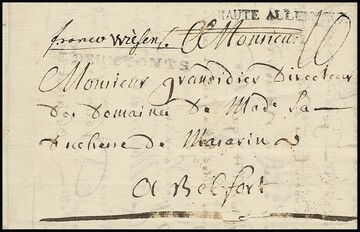 HAUTE ALLEM
franco Wiesen. A Monsieur
Monsieur grandidier Directeur
des Domaines de Made La
Duchesse de Mazarin
A Belfort